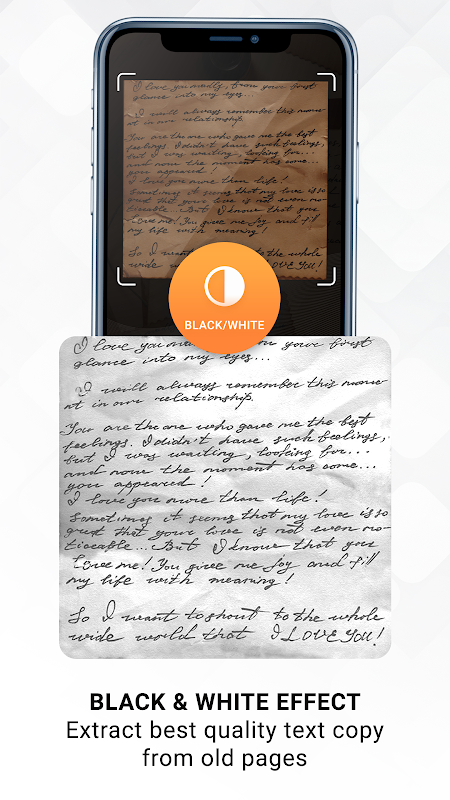 I love you madly, from your first
glance into my eyes...
I will always remember this mome
nt in our relationship.
You are the one who gave me the best
feelings. I didn't have such feelings,
but I was waiting, looking for...
and now the moment has come...
you appeared!
I love you more than life!
Sometimes it seems that my love is so
great that your love is not even no-
ticeable... But I know that you
love me! You give me joy and fill
my life with meaning!
So I want to the whole
wide LOVE YOU!
BLACK/WHITE
I love you your first
glance into my eyes...
I will always remember this mome
nt in our relationship.
You are the one who gave me the best
feelings. I didn't have such feelings,
but I was waiting, looking for...
and now the moment has come...
you appeared!
I love you more than life!
Sometimes it seems that my love is so
great that your love is not even no-
ticeable... But I know that you
love me! You give me joy and fill
my life with meaning!
So I want to shout to the whole
wide world that I LOVE YOU!
BLACK & WHITE EFFECT
Extract best quality text copy
from old pages